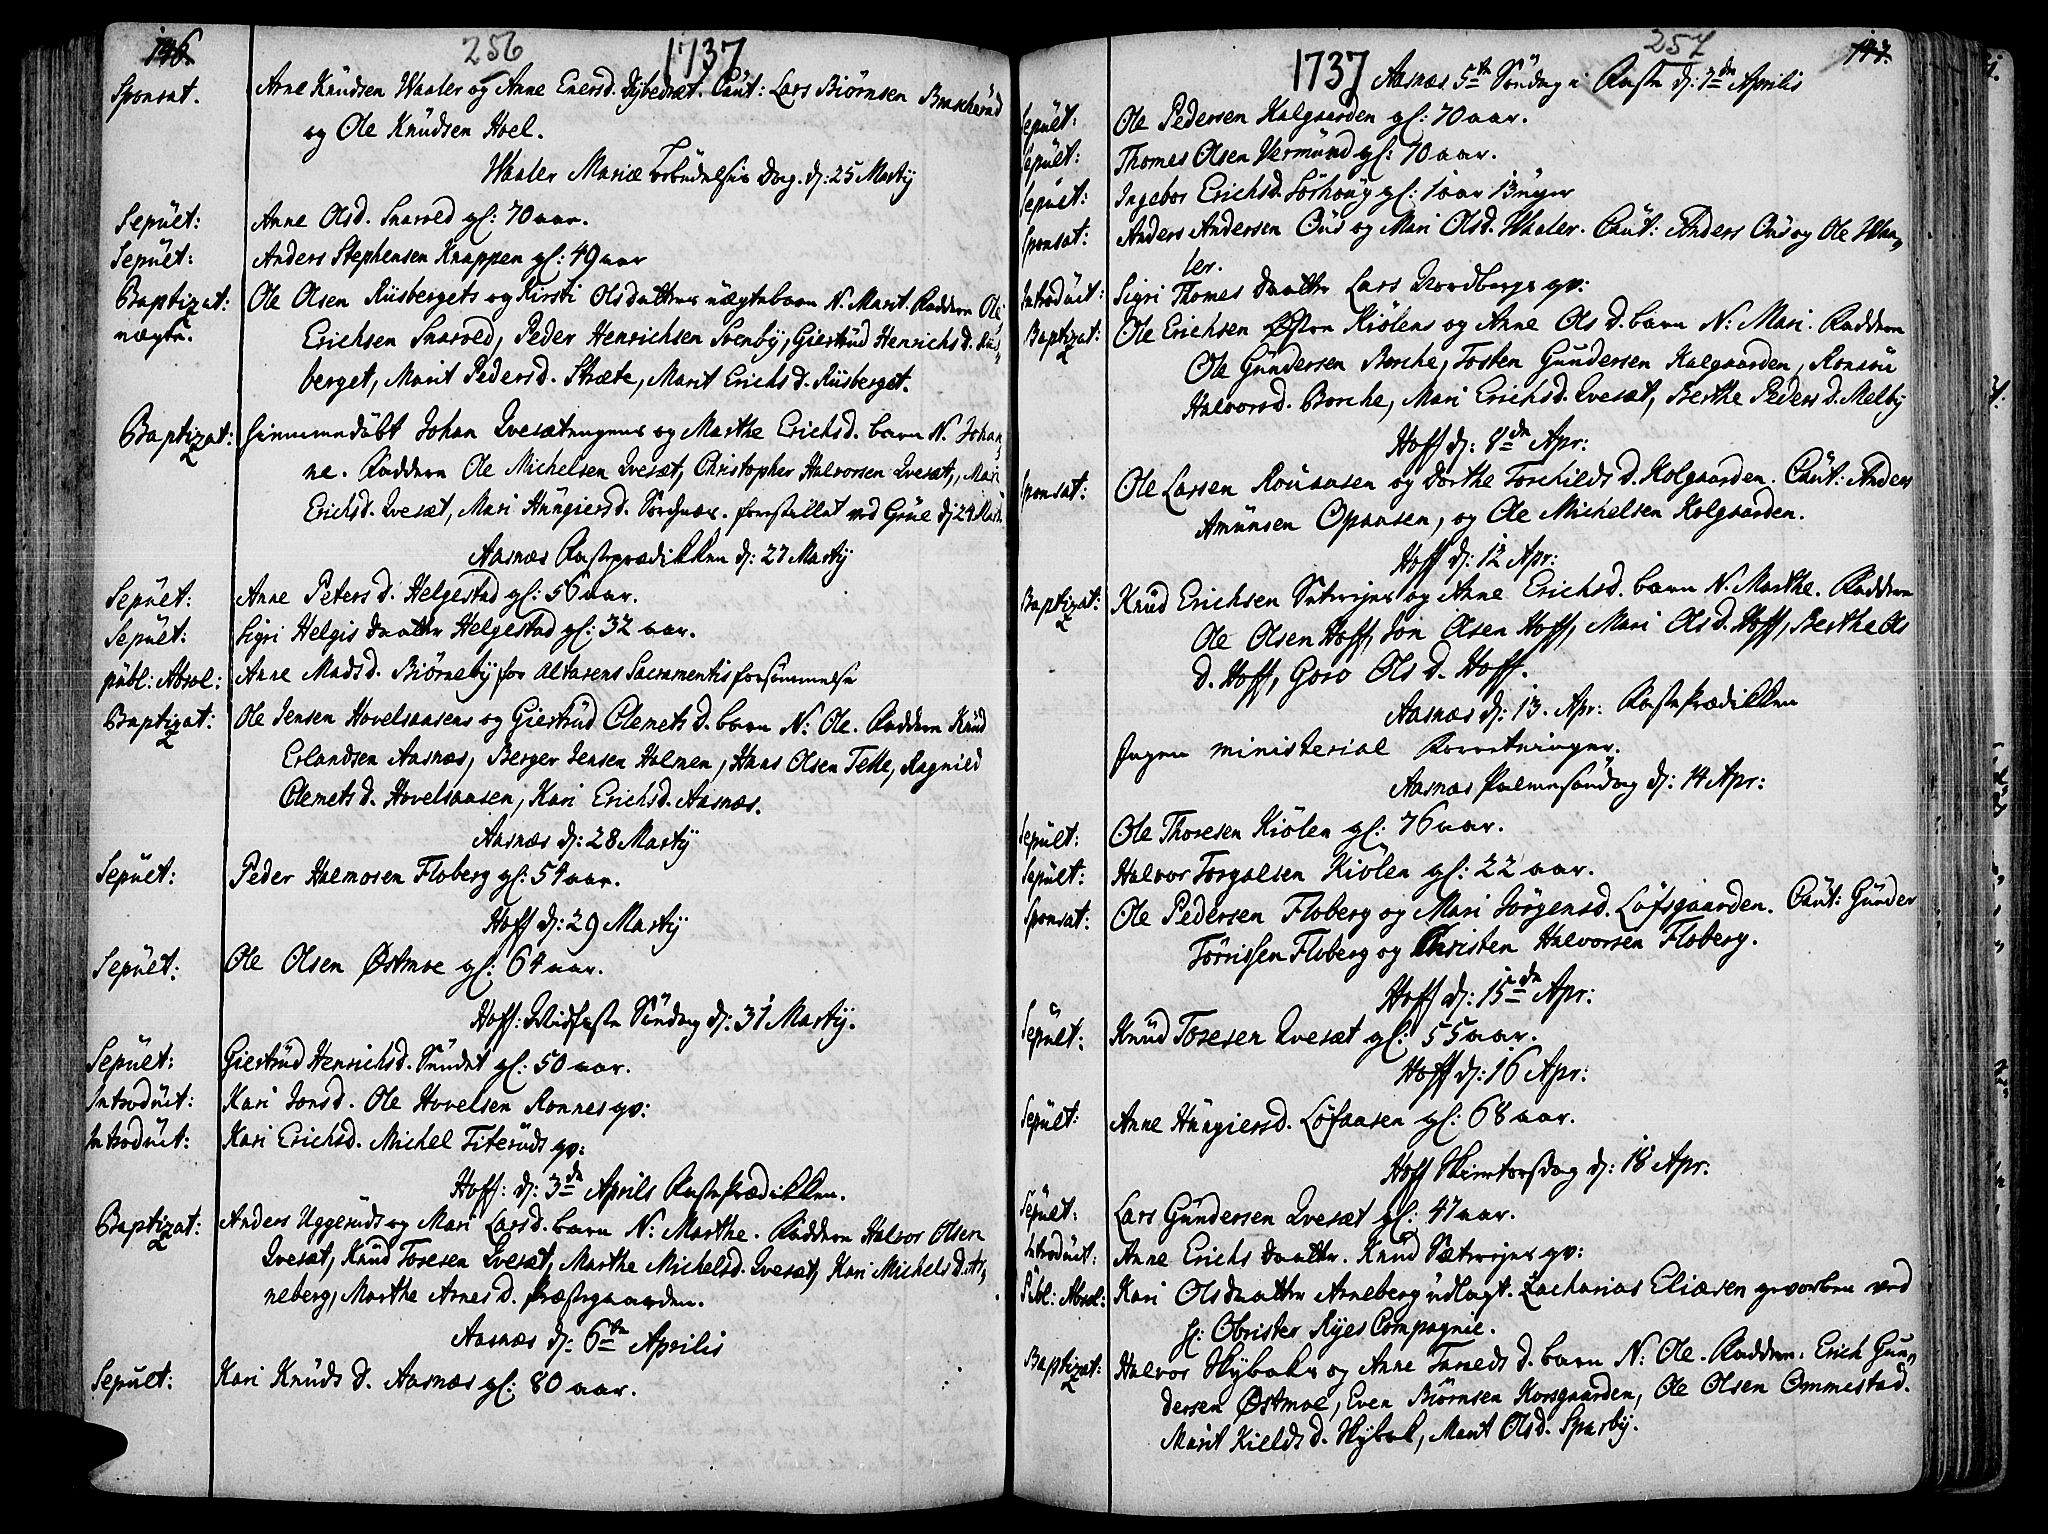 146.
256
1737
Sponsat. Arne Knudsen Waaler og Anne Enersd. Dybedræt. Caut: Lars Biørnsen Braskerud
og Ole Knudsen Hoel.
Waaler Mariæ Bebudelses Dag. d: 25 Martij
Sepult: Anne Olsd. Snarved gl: 70 aar.
Sepult: Anders Stephensen Knappen gl: 49 aar
Baptizat: Ole Olsen Riisbergets og Kirsti Olsdatters uægtebarn N. Marit. Faddern Ole
uægte. Erichsen Snarved, Peder Henrichsen Svenby, Giertrud Henrichsd. Riis,,
berget, Marit Pedersd. Stræte, Marit Erichsd. Riisberget.
Baptizat: hiemmedøbt Johan Qvesætengens og Marthe Erichsd. barn N. Johan,,
2 ne. Faddern Ole Michelsen Qvesæt, Christopher Halvorsen Qvesæt, Mari
Erichsd. Qvesæt, Mari Hungiersd. Nordnær. fremstillet ved Grue d: 24 Mart.
Aasnæs Fasteprædikken d: 27 Martij
Sepult: Anne Petersd. Helgestad gl: 56 aar.
Sepult: Sigri Helgis daatter Helgestad gl: 32 aar.
publ: Absol: Anne Madsd. Biørneby for Altarens Sacramentis forsømmelse
Baptizat: Ole Jensen Hovelsaasens og Giertrud Clemetsd. barn N: Ole. Faddern Knud
2 Erlandsen Aasnæs, Berger Jensen Holmen, Hans Olsen Telle, Ragnild
Clemetsd. Hovelsaasen, Kari Erichsd. Aasnæs.
Aasnæs d: 28 Martij
Sepult: Peder Halmosen Floberg gl: 54 aar.
Hoff d: 29 Martij
Sepult: Ole Olsen Østmoe gl: 64 aar.
Hoff: Midfaste Søndag d: 31 Martij.
Sepult: Giertrud Henrichsd. Sundet gl: 50 aar.
Introduct: Kari Jonsd. Ole Hovelsen Rønnes qv:
Introduct: Kari Erichsd. Michel Titeruds qv:
Hoff: d: 3dn Aprils Fasteprædikken.
Baptizat: Anders Uggeruds og Mari Larsd. barn N: Marthe. Faddern Halvor Olsen
2 Qvesæt, Knud Toresen Qvesæt, Marthe Michelsd. Qvesæt, Kari Michelsd. Ar,,
neberg, Marthe Arnesd. Præstegaarden.
Aasnæs d: 6te Aprilis
Sepult: Kari Knudsd. Aasnæs gl: 80 aar.
147.
257
1737 Aasnæs 5te Søndag i Faste d: 7dn Aprilis
Sepult: Ole Pedersen Kalgaarden gl: 70 aar.
Sepult: Thomes Olsen Vermund gl: 70 aar.
Sepult: Ingebor Erichsd. Sørhoug gl: 1 aar 13 uger
Sponsat: Anders Andersen Our og Mari Olsd. Waaler. Caut: Anders Our og Ole Waa,,
ler.
Introduct: Sigri Thomes daatter Lars Nordbergs qv:
Baptizat: Ole Erichsen Østre Kiølens og Anne Olsd. barn N: Mari. Faddern
2 Ole Gundersen Borche, Tosten Gundersen Kalgaarden, Ronnou
Halvorsd. Borche, Mari Erichsd. Qvesæt, Berthe Pedersd. Melby
Hoff d: 8dn Apr:
Sponsat: Ole Larsen Rouaasen og Dorthe Torchildsd. Kolgaarden. Caut: Anders
Amunsen Opaasen, og Ole Michelsen Kolgaarden.
Hoff d: 12 Apr:
Baptizat: Knud Erichsen Sætervejes og Anne Erichsd. barn N: Marthe. Faddern
2 Ole Olsen Hoff, Jon Olsen Hoff, Mari Olsd. Hoff, Berthe Ols
d. Hoff, Goro Olsd. Hoff.
Aasnæs d: 13. Apr: Fasteprædikken
Ingen ministerial Forretninger.
Aasnæs Palmesøndag d: 14 Apr:
Sepult: Ole Thoresen Kiølen gl: 76 aar.
Sepult: Halvor Torgalsen Kiølen gl: 22 aar.
Sponsat: Ole Pedersen Floberg og Mari Jørgensd. Løfsgaarden. Caut: Gunder
Tørrissen Floberg og Christen Halvorsen Floberg.
Hoff d: 15dn Apr:
Sepult: Knud Toresen Qvesæt gl: 55 aar.
Hoff d: 16 Apr:
Sepult: Anne Hungiersd. Løfaasen gl: 68 aar.
Hoff Skiertorsdag d: 18 Apr:
Sepult: Lars Gundersen Qvesæt gl: 47 aar.
Introduct: Anne Erichs daatter. Knud Sætervejes qv:
Publ: Absol: Kari Olsdaatter Arneberg udlagt. Zacharias Eliæsen gevorben ved
H: Obrister Ryes Compagnie.
Baptizat: Halvor Skybaks og Anne Taraldsd. barn N: Ole. Faddern: Erich Gun,,
2 dersen Østmoe, Even Biørnsen Korsgaarden, Ole Olsen Ommestad.
Marit Kieldsd. Skybak, Marit Olsd. Sparby.